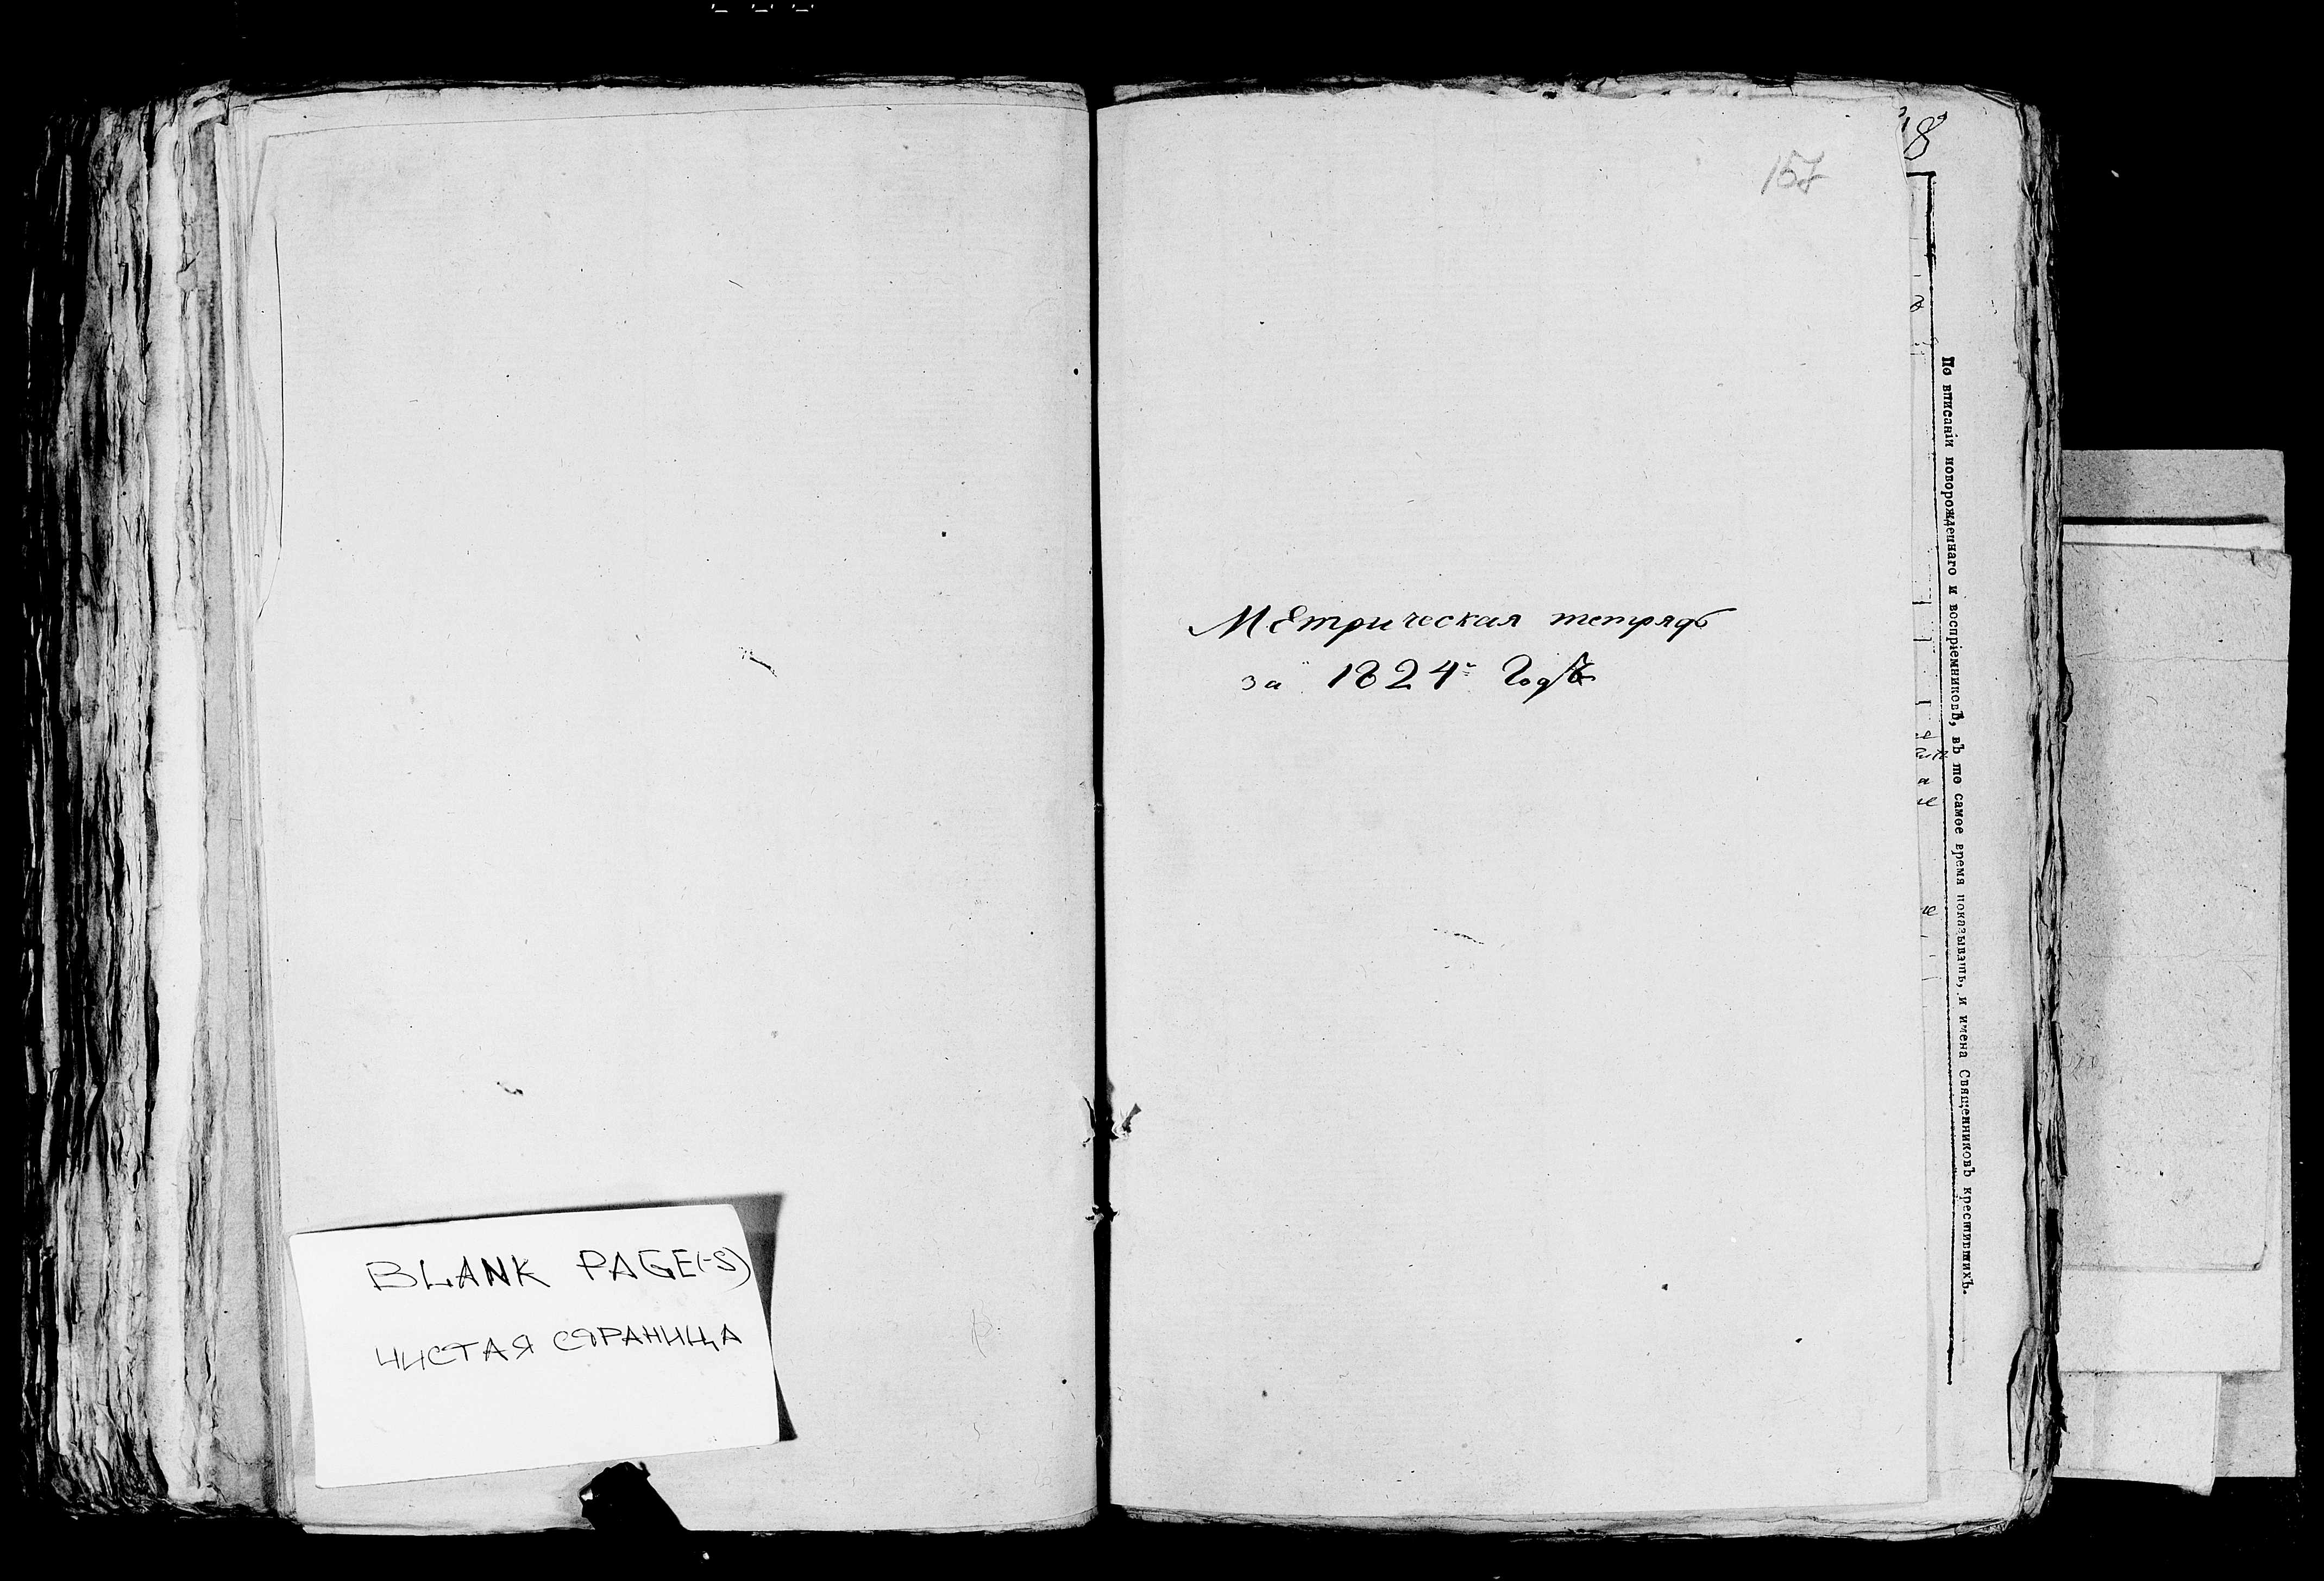 BLANK PAGE(-S)
ЧИСТАЯ СТРАНИЦА
157
8
Метрическая тетрадь
за 1824й Годъ
По вписаніи новорожденнаго и воспріемниковъ, въ то самое время показывать, и имена Священниковъ крестившихъ.